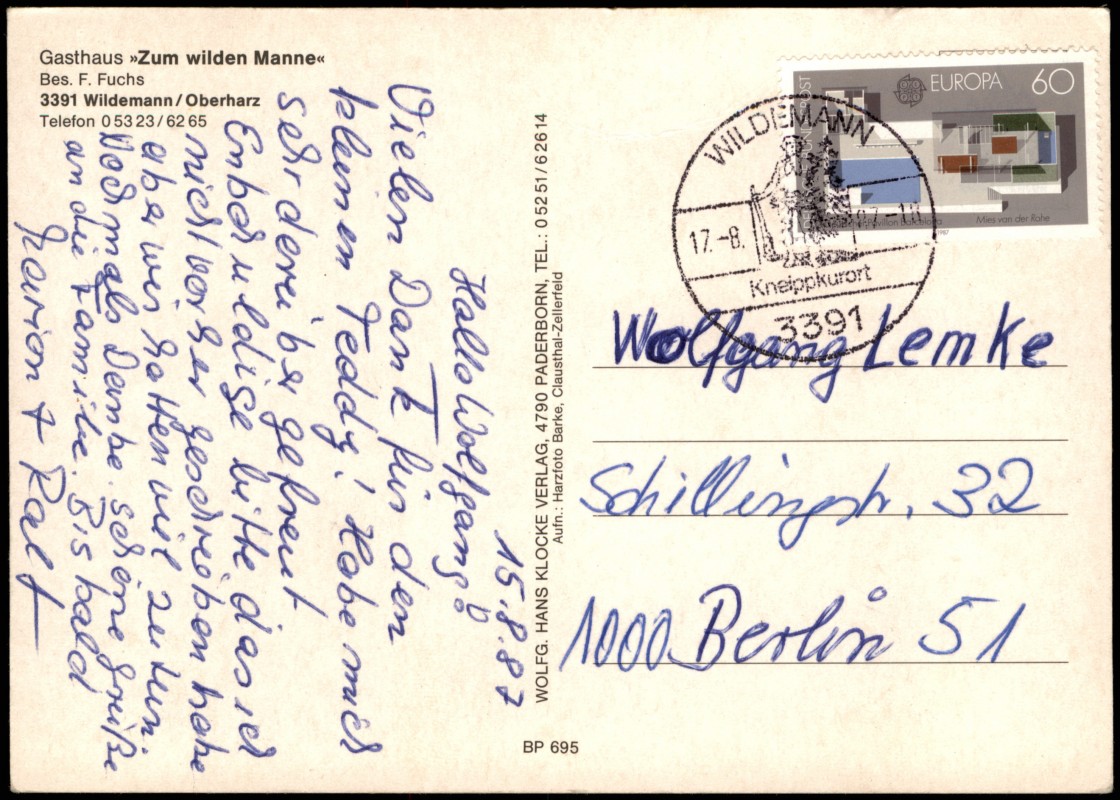 Gasthaus »Zum wilden Manne«
Bes. F. Fuchs
3391 Wildemann/Oberharz
Telefon 0 53 23 / 62 65
15.8.87
Hallo Wolfgang!
Vielen Dank für den
kleinen Teddy! Habe mich
sehr derüber gefreut
Entschuldige bitte das ich
nicht vorher geschrieben habe
aber wir hatten viel zu tun.
Nochmals Danke. schöne Grüße
an die Familie. Bis bald
Marion + Ralf
WOLFG. HANS KLOCKE VERLAG, 4790 PADERBORN, TEL.: 0 52 51 / 6 26 14
Aufn.: Harzfoto Barke, Clausthal-Zellerfeld
BP 695
EUROPA 60
Mies van der Rohe
1987
WILDEMANN
17.-8.
Kneippkurort
3391
Wolfgang Lemke
Schillingstr. 32
1000 Berlin 51